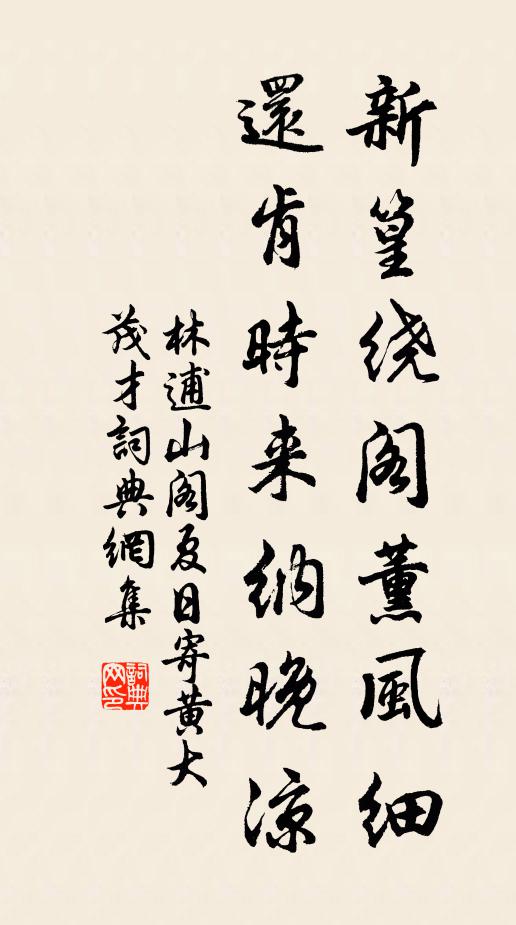 新篁绕阁薰風细
還肯時来纳晚凉
林逋山阁夏日寄黄大
茂才詞典網集
詞典
网印